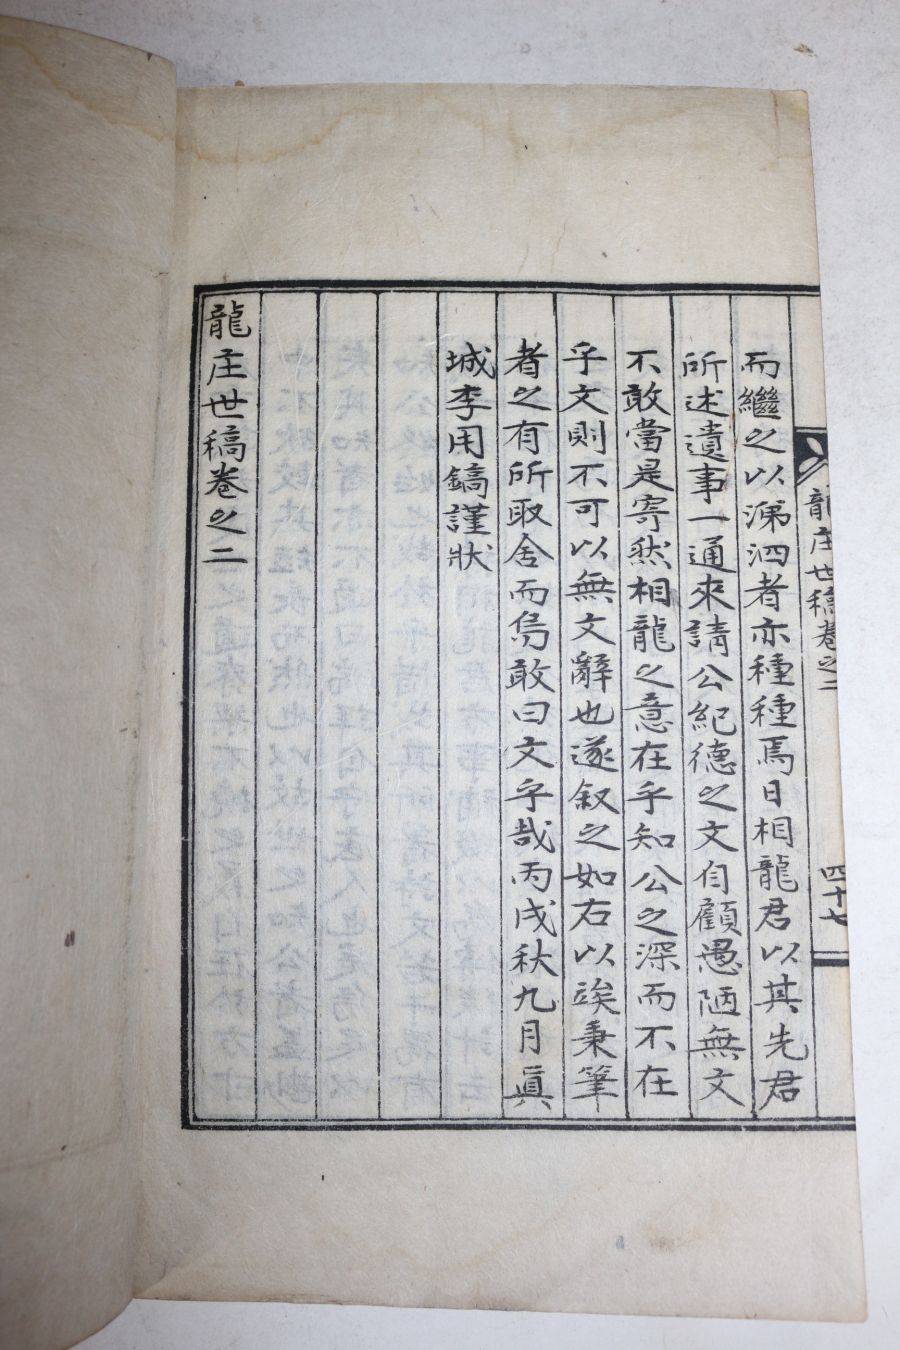 龍庄世稿卷之二
四十七
而繼之以涕泗者亦種種焉日相龍君以其先君
所述遺事一通來請公紀德之文自顧愚陋無文
不敢當是寄然相龍之意在乎知公之深而不在
乎文則不可以無文辭也遂叙之如右以竢秉筆
者之有所取舍而爲敢曰文乎哉丙戌秋九月眞
城李用鎬謹狀
龍庄世稿卷之二